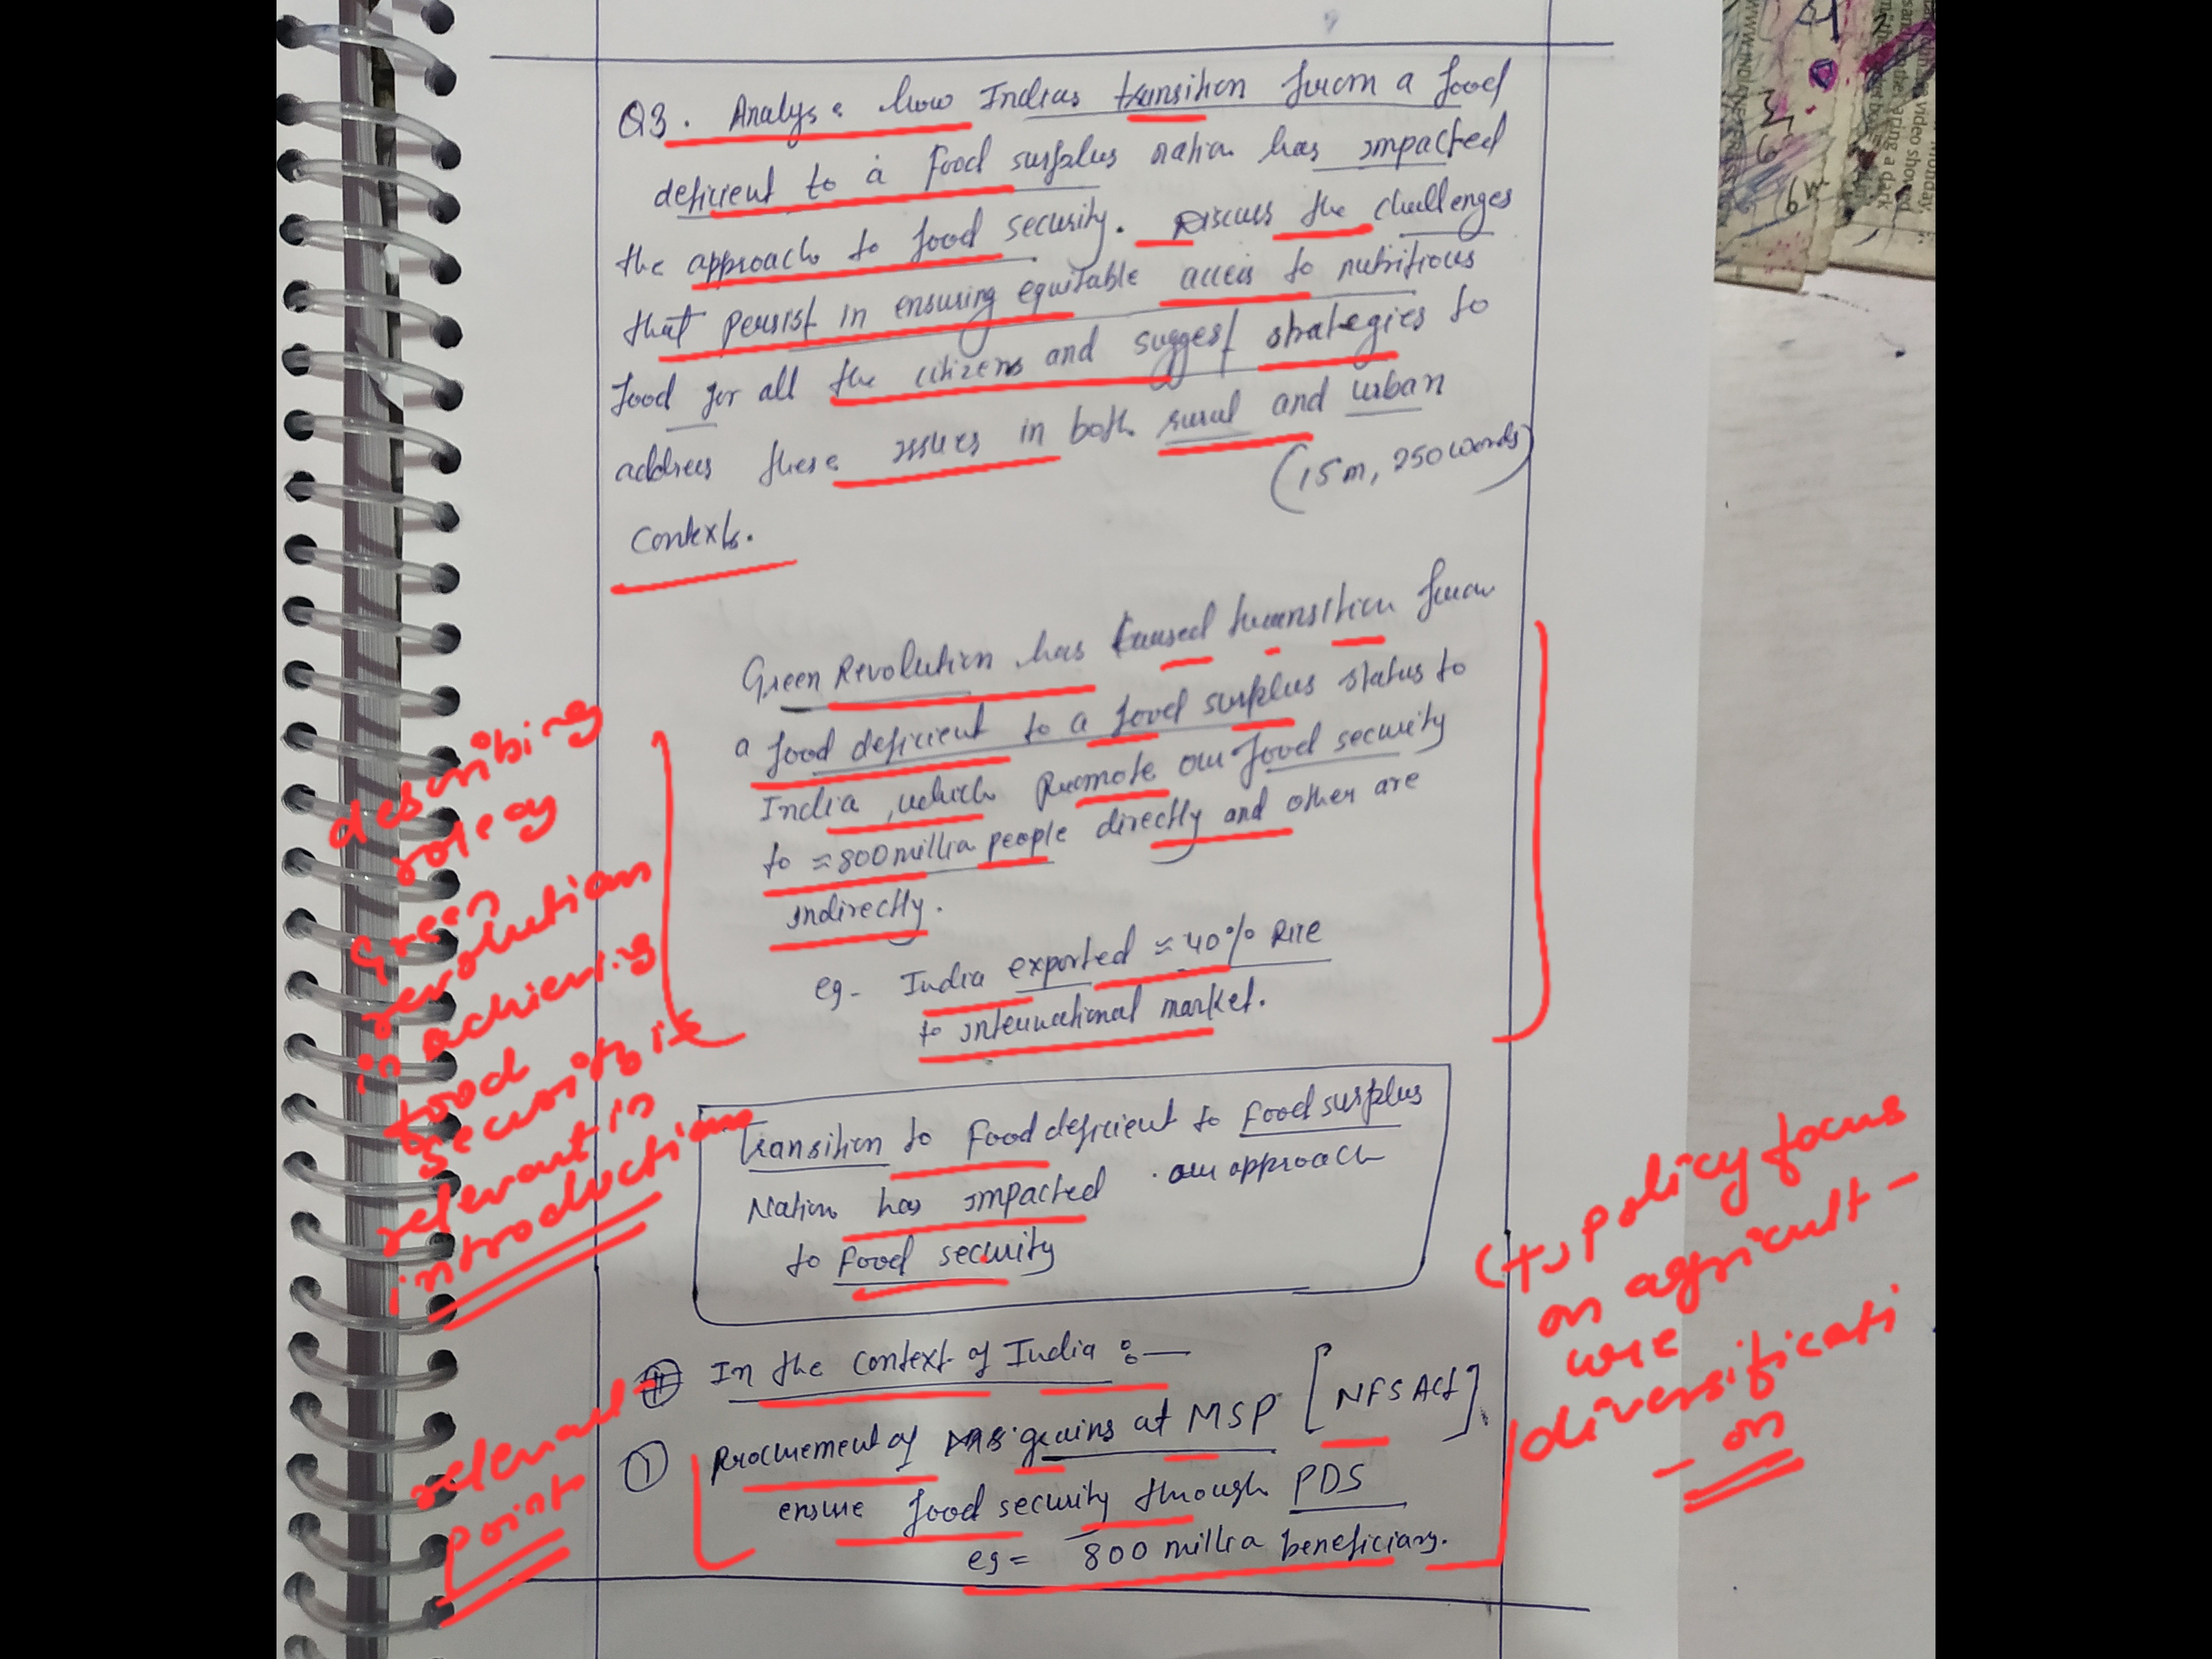 Q3. Analyse how Indias transition from a food
deficient to a food surplus nation has impacted
the approach to food security. Discuss the challenges
that persist in ensuring equitable access to nutritious
food for all the citizens and suggest strategies to
address these issues in both rural and urban
(15m, 250 words)
contexts.
Green Revolution has caused transition from
a food deficient to a food surplus status to
India, which promote our food security
to ≈ 800 million people directly and other are
indirectly.
eg - India exported ≈ 40% Rice
to international market.
describing
role of
Green
revolution
in achieving
food
security is
relevant in
introduction
Transition to Food deficient to Food surplus
Nation has impacted our approach
to Food security
In the context of India :—
① Procurement of grains at MSP [NFS Act]
ensure food security through PDS
eg = 800 million beneficiary.
relevant
point
(+) policy focus
on agricult-
ure
diversificati
- on